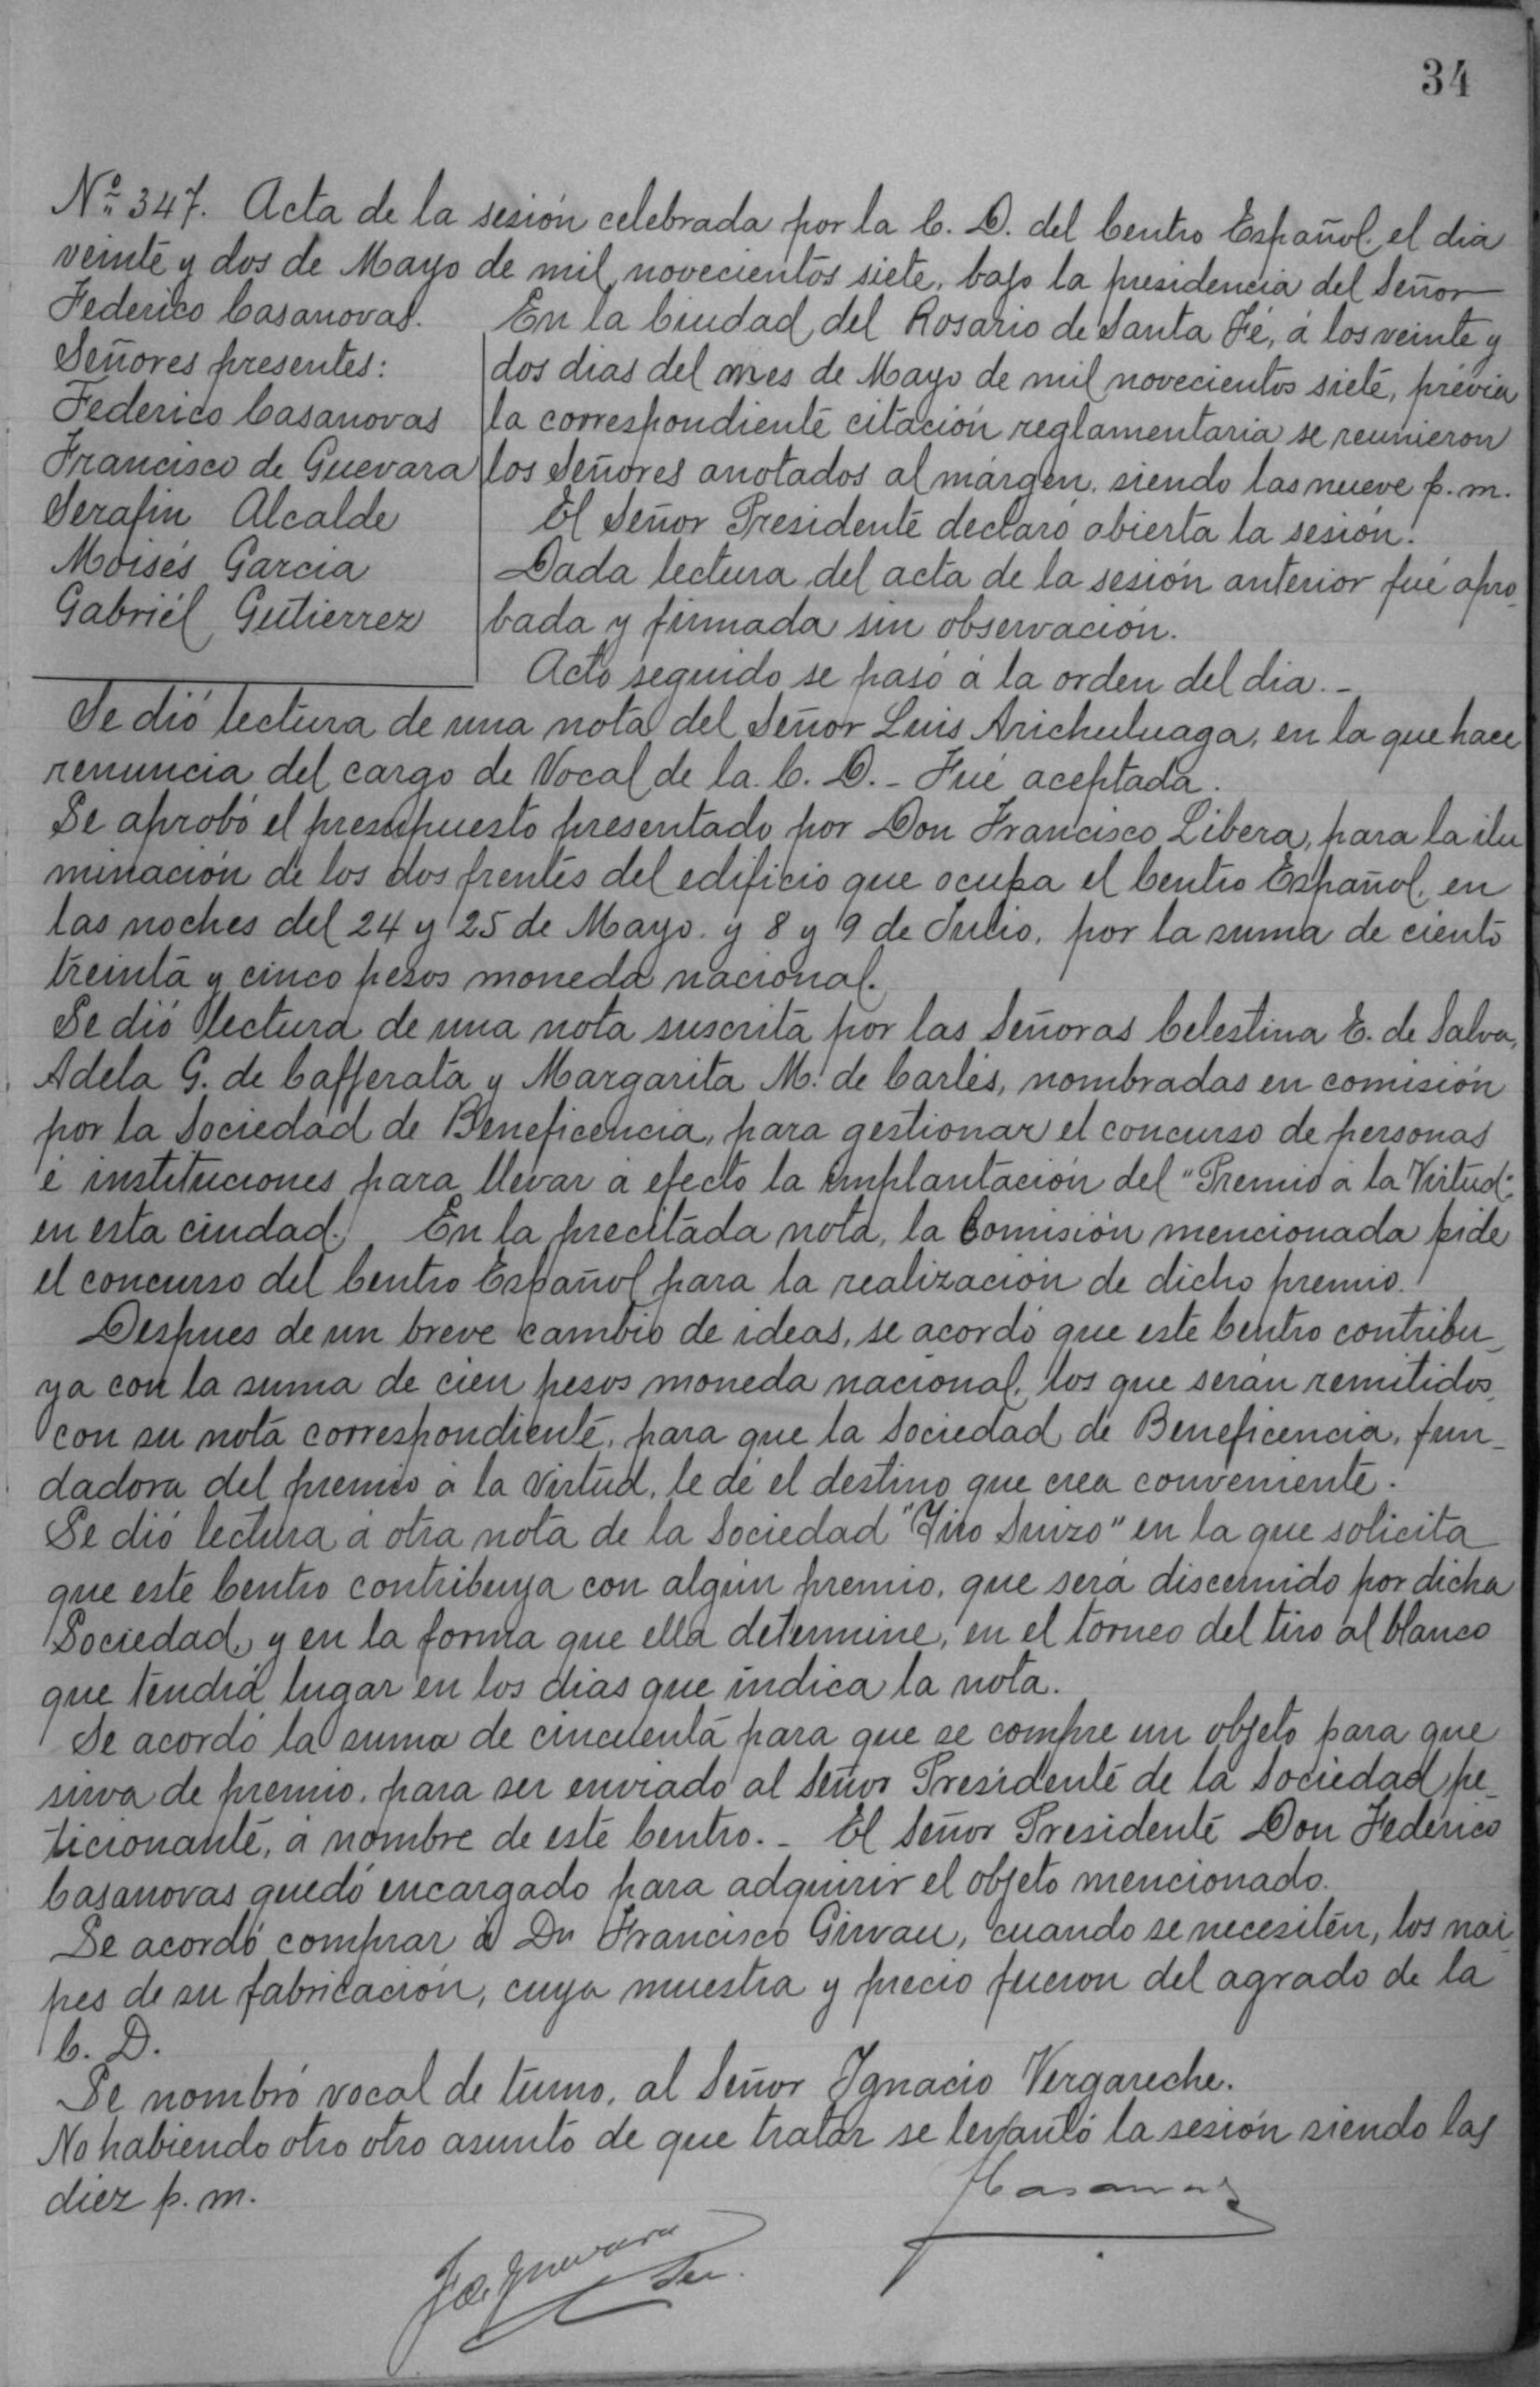 34
Nº 347. Acta de la sesión celebrada por la C. D. del Centro Español, el dia
veinte y dos de Mayo de mil novecientos siete, bajo la presidencia del Señor
Federico Casanovas.
Señores presentes:
Federico Casanovas
Francisco de Guevara
Serafin Alcalde
Moisés Garcia
Gabriél Gutierrez
En la Ciudad del Rosario de Santa Fé, á los veinte y
dos dias del mes de Mayo de mil novecientos siete, prévia
la correspondiente citación reglamentaria se reunieron
los Señores anotados al márgen, siendo las nueve p. m.
El Señor Presidente declaró abierta la sesión.
Dada lectura del acta de la sesión anterior fué apro-
bada y firmada sin observación.
Acto seguido se pasó á la orden del dia. -
Se dió lectura de una nota del Señor Luis Arichuluaga, en la que hace
renuncia del cargo de Vocal de la C. D. - Fué aceptada.
Se aprobó el presupuesto presentado por Don Francisco Libera, para la ilu
minación de los dos frentes del edificio que ocupa el Centro Español, en
las noches del 24 y 25 de Mayo y 8 y 9 de Julio, por la suma de ciento
treinta y cinco pesos moneda nacional.
Se dió lectura de una nota suscrita por las Señoras Celestina E. de Salva,
Adela G. de Cafferata y Margarita M. de Carlés, nombradas en comisión
por la Sociedad de Beneficencia, para gestionar el concurso de personas
é instituciones para llevar á efecto la implantación del "Premio á la Virtud"
en esta ciudad. En la precitada nota, la Comisión mencionada pide
el concurso del Centro Español para la realización de dicho premio.
Despues de un breve cambio de ideas, se acordó que este Centro contribu-
ya con la suma de cien pesos moneda nacional, los que serán remitidos,
con su nota correspondiente, para que la Sociedad de Beneficencia, fun-
dadora del premio á la Virtud, le dé el destino que crea conveniente.
Se dió lectura á otra nota de la Sociedad "Tiro Suizo" en la que solicita
que este Centro contribuya con algún premio, que será discernido por dicha
Sociedad, y en la forma que ella determine, en el torneo del tiro al blanco
que tendrá lugar en los dias que indica la nota.
Se acordó la suma de cincuenta para que se compre un objeto para que
sirva de premio, para ser enviado al Señor Presidente de la Sociedad pe-
ticionante, á nombre de este Centro. - El Señor Presidente Don Federico
Casanovas quedó encargado para adquirir el objeto mencionado.
Se acordó comprar á Dn Francisco Girvau, cuando se necesiten, los nai
pes de su fabricación, cuya muestra y precio fueron del agrado de la
C. D.
Se nombró vocal de turno, al Señor Ignacio Vergareche.
No habiendo otro otro asunto de que tratar se levantó la sesión siendo las
diez p. m.
FCasanovas
F de Guevara
Sec.